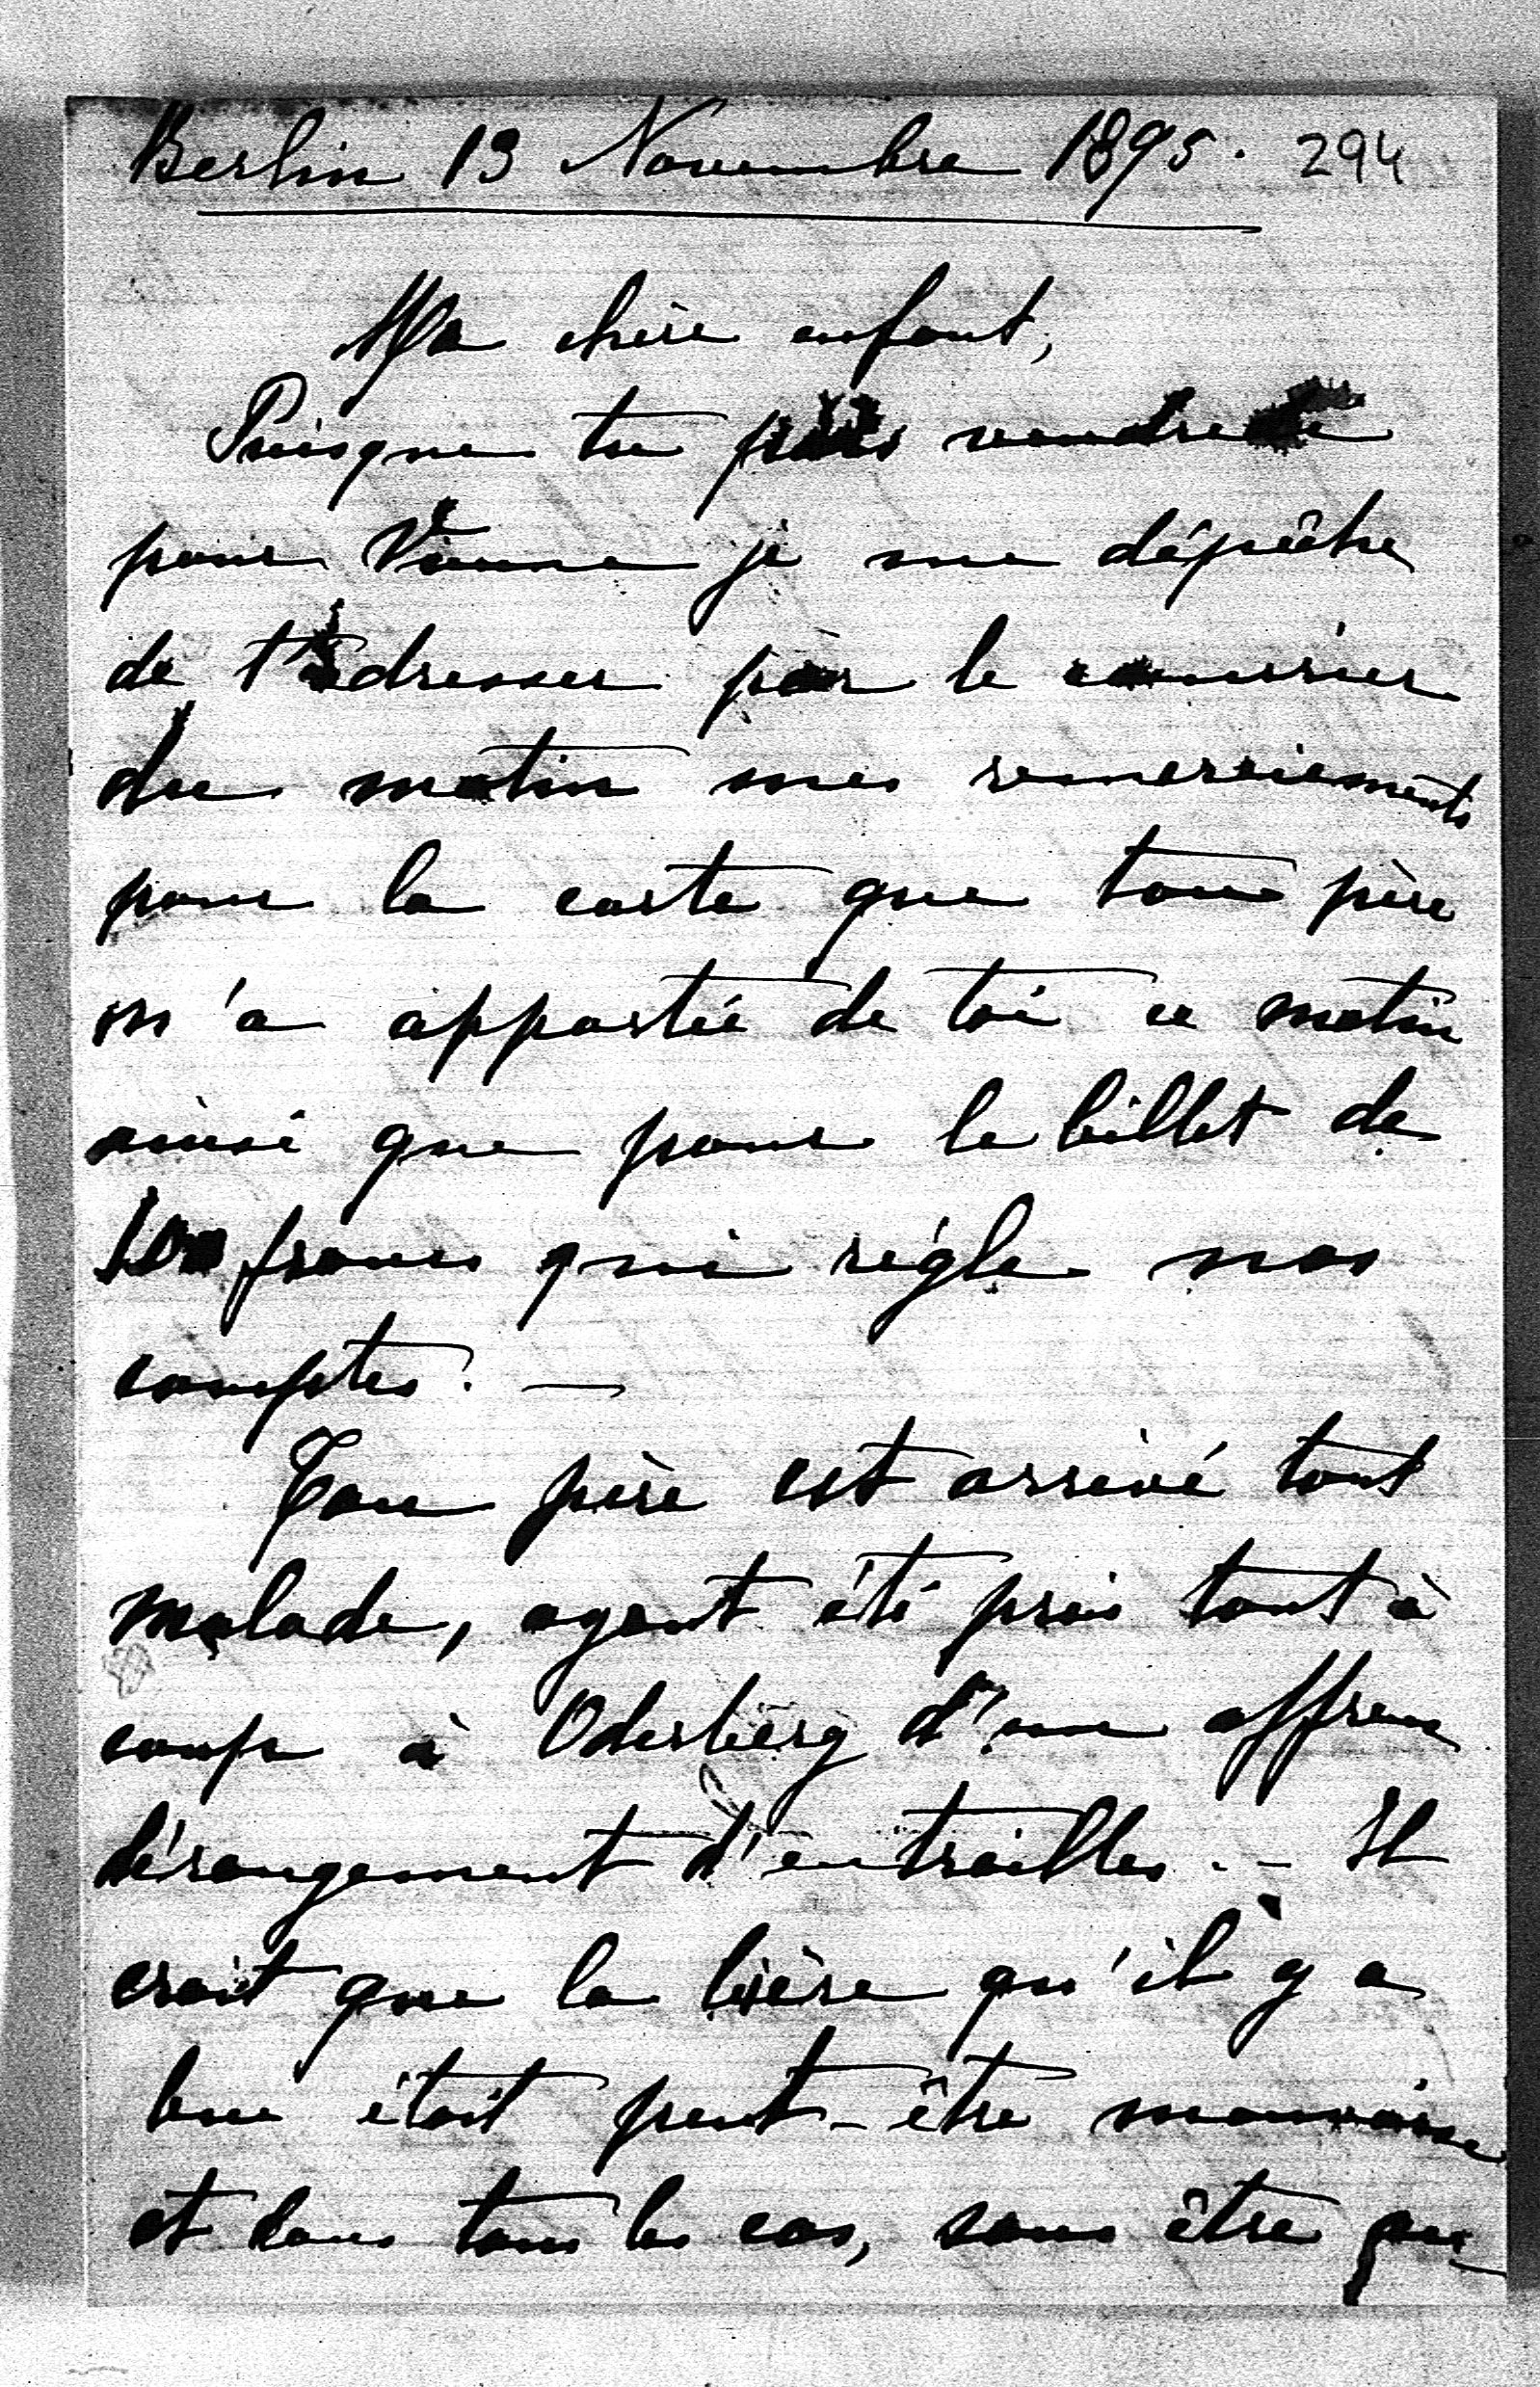 Berlin 13 Novembre 1895. 294
Ma chère enfant,
Puisque tu pars vendredi
pour Vienne je me dépêche
de t'adresser par le courrier
du matin mes remerciements
pour la carte que ton père
m'a apportée de toi ce matin
ainsi que pour le billet de
100 francs qui règle nos
comptes. —
Ton père est arrivé tout
malade, ayant été pris tout à
coup à Oderberg d'un affreux
dérangement d'entrailles. - Il
croit que la bière qu'il y a
bue était peut-être mauvaise
et dans tous les cas, sans être